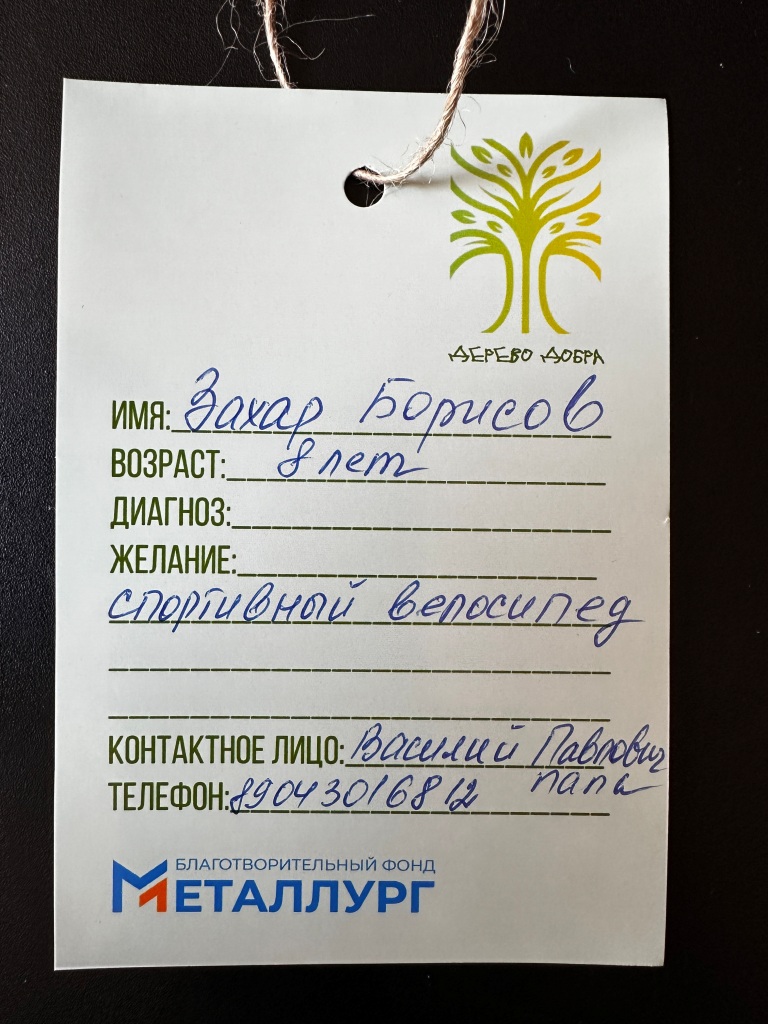 ДЕРЕВО ДОБРА
ИМЯ: Захар Борисов
ВОЗРАСТ: 8 лет
ДИАГНОЗ:
ЖЕЛАНИЕ:
спортивный велосипед
КОНТАКТНОЕ ЛИЦО: Василий Павлович
папа
ТЕЛЕФОН: 89043016812
БЛАГОТВОРИТЕЛЬНЫЙ ФОНД
МЕТАЛЛУРГ